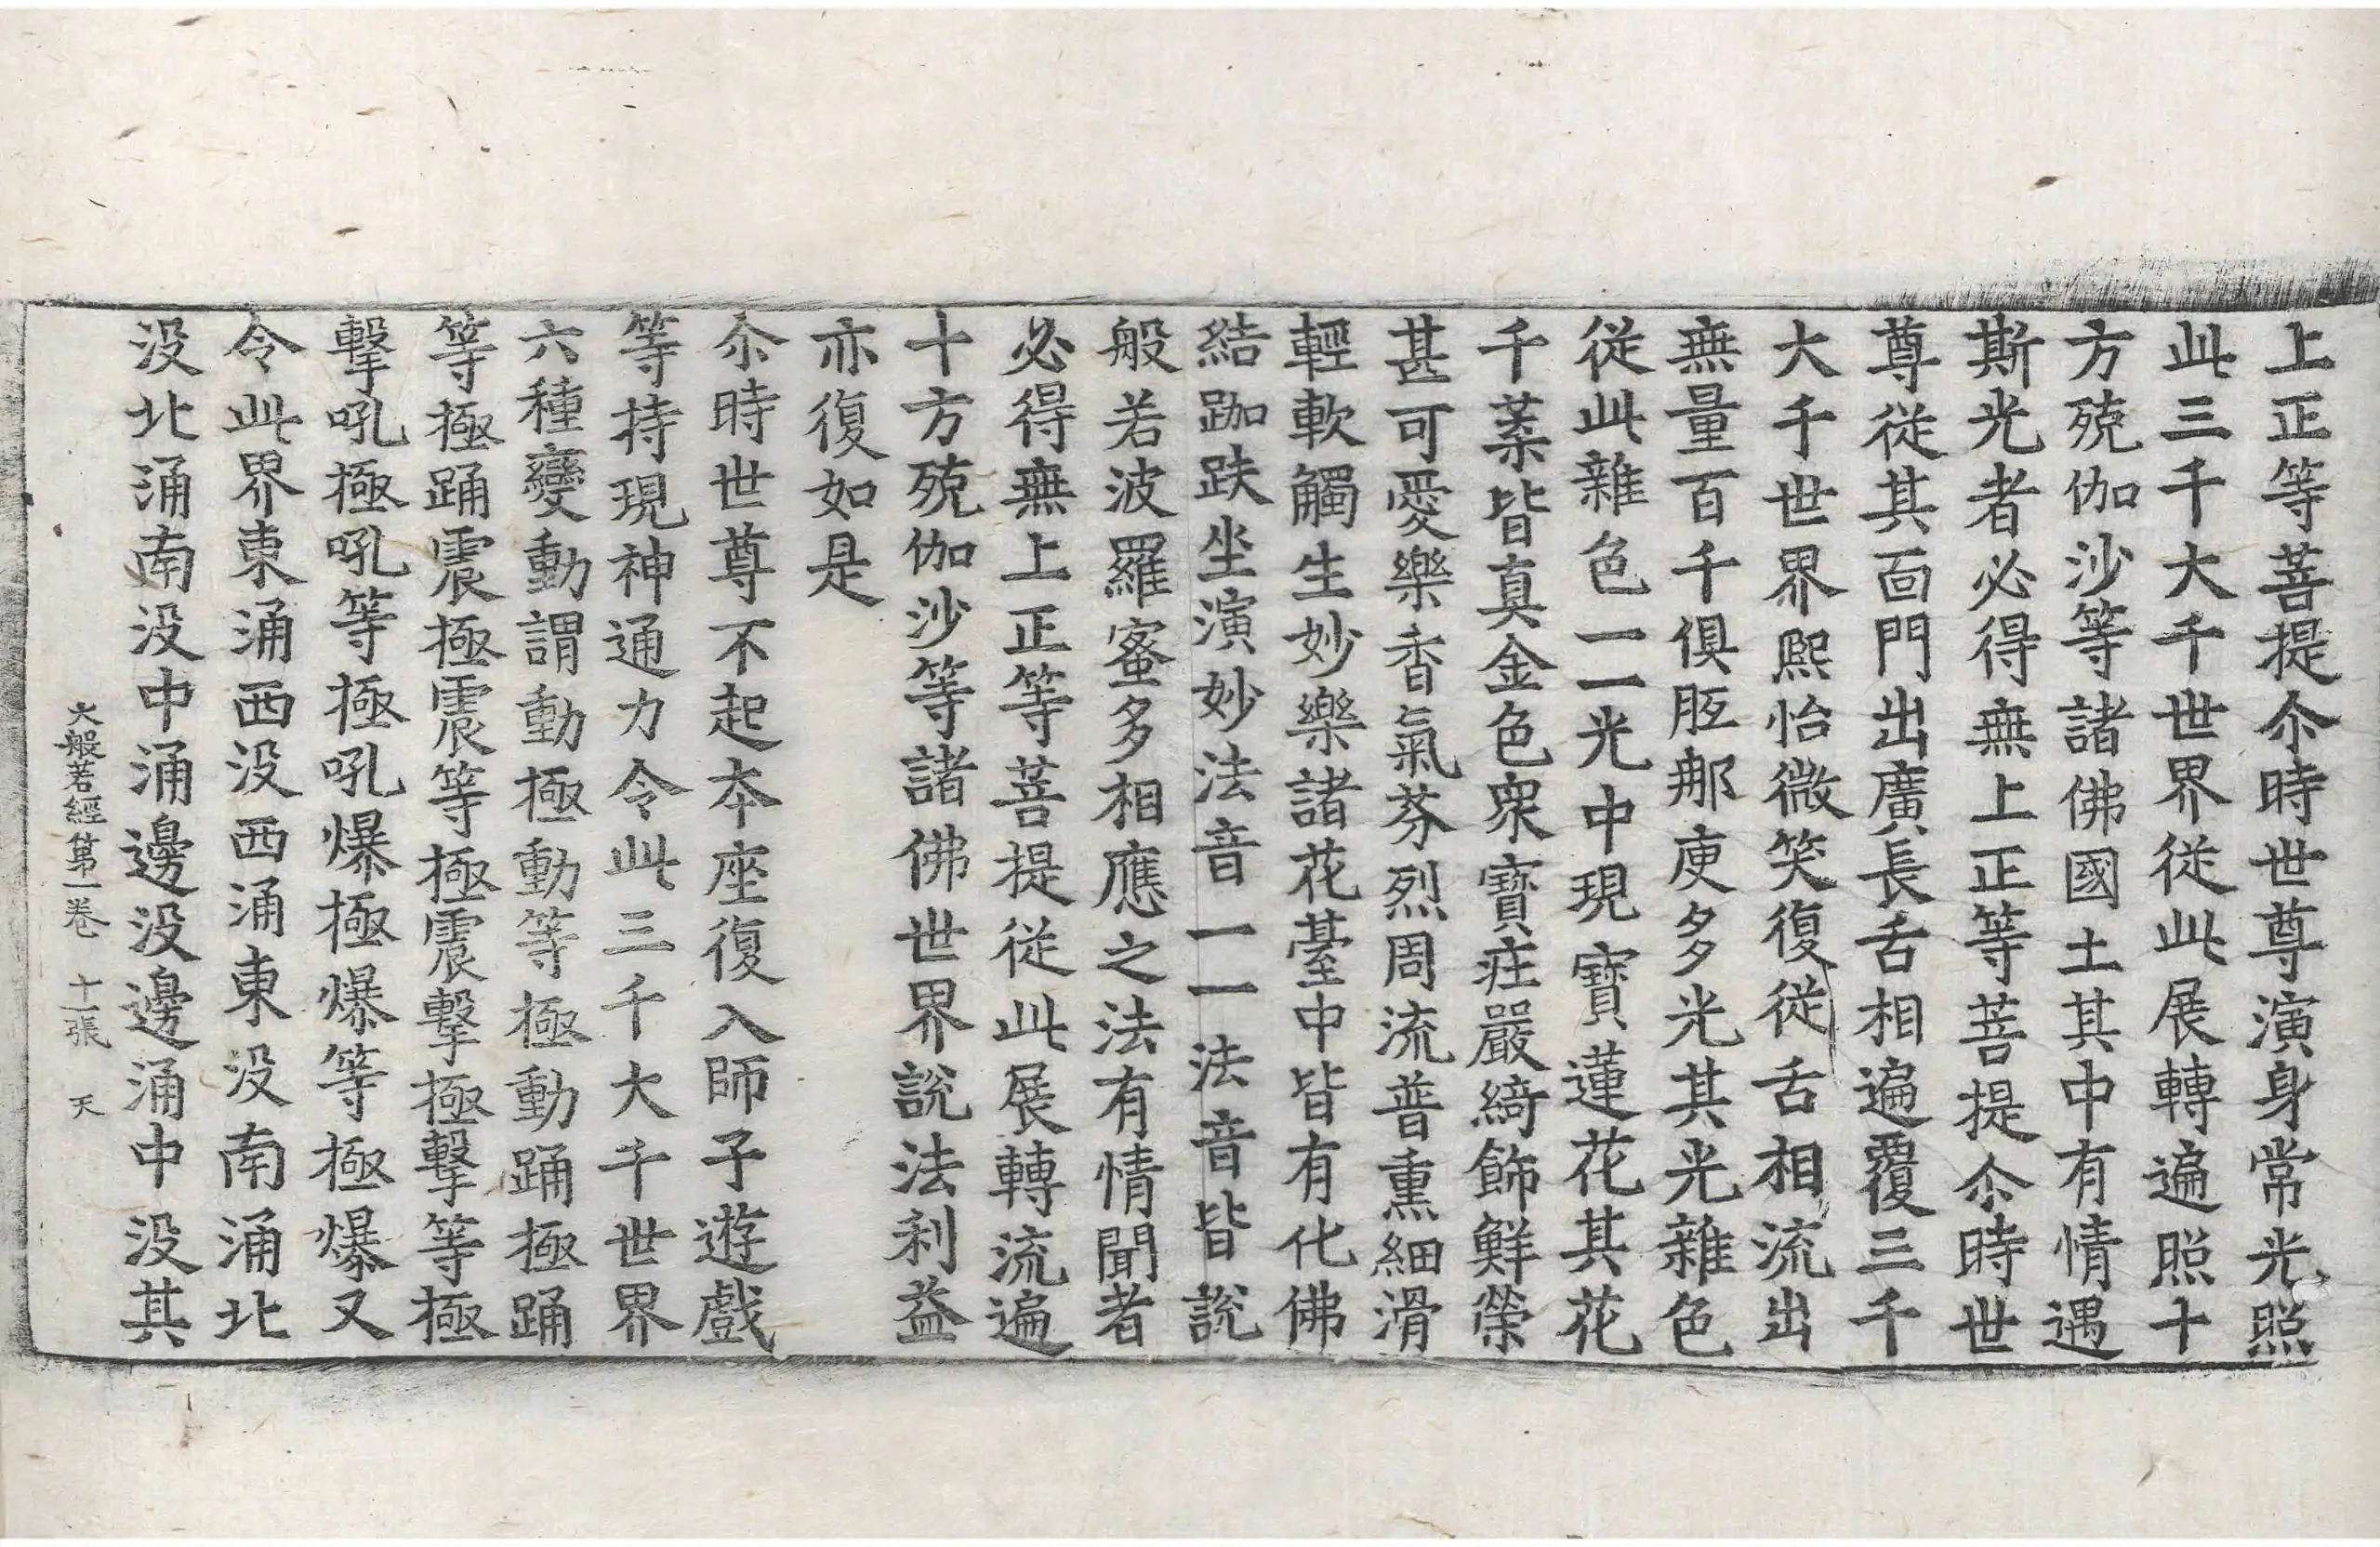 上正等菩提尒時世尊演身常光照
此三千大千世界從此展轉遍照十
方殑伽沙等諸佛國土其中有情遇
斯光者必得無上正等菩提尒時世
尊從其面門出廣長舌相遍覆三千
大千世界熈怡微笑復從舌相流出
無量百千俱胝那庾多光其光雜色
從此雜色一一光中現寶蓮花其花
千葉皆真金色衆寶莊嚴綺飾鮮榮
甚可愛樂香氣芬烈周流普熏細滑
輕軟觸生妙樂諸花臺中皆有化佛
結跏趺坐演妙法音一一法音皆說
般若波羅蜜多相應之法有情聞者
必得無上正等菩提從此展轉流遍
十方殑伽沙等諸佛世界說法利益
亦復如是
尒時世尊不起本座復入師子遊戲
等持現神通力令此三千大千世界
六種變動謂動極動等極動踊極踊
等極踊震極震等極震擊極擊等極
擊吼極吼等極吼爆極爆等極爆又
令此界東涌西没西涌東没南涌北
没北涌南没中涌邊没邊涌中没其
大般若經第一卷 十一張 天